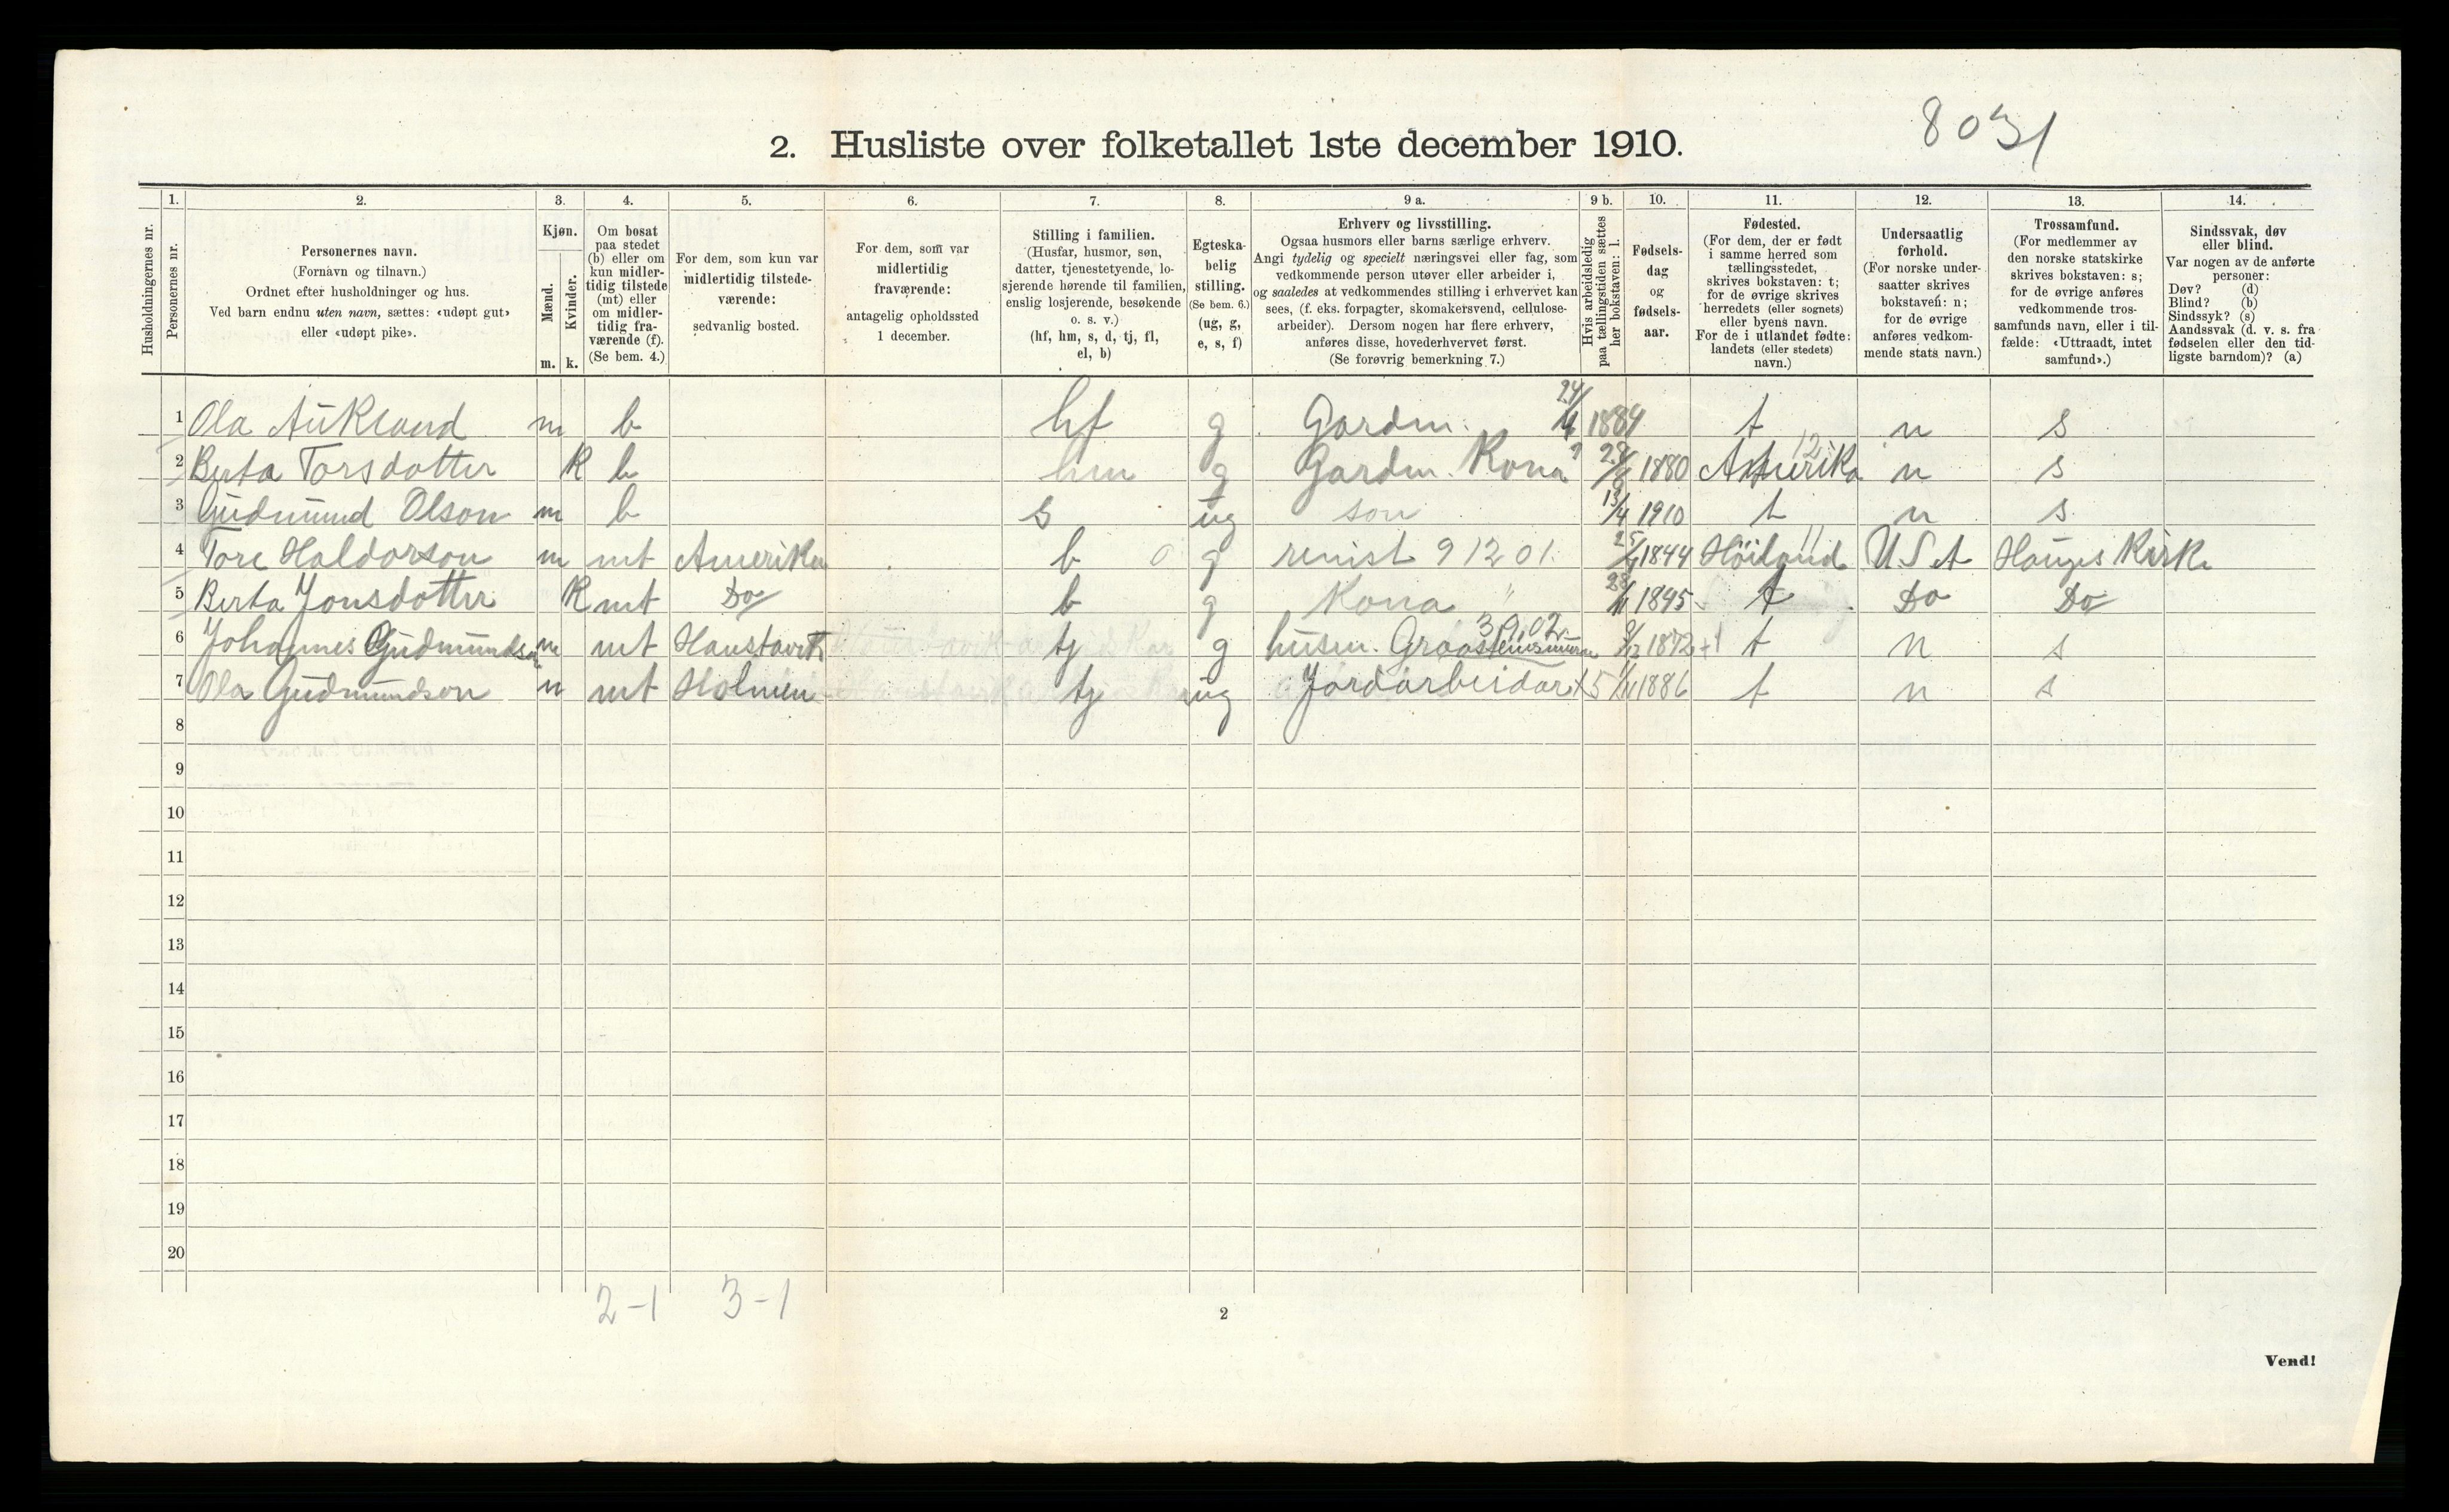 2. Husliste over folketallet 1ste december 1910.
8031
Husholdningernes nr.
1.
Personernes nr.
2.
Personernes navn.
(Fornavn og tilnavn.)
Ordnet efter husholdninger og hus.
Ved barn endnu uten navn, sættes: «udøpt gut»
eller «udøpt pike».
3.
Kjøn.
Mænd.
Kvinder.
m. k.
4.
Om bosat
paa stedet
(b) eller om
kun midler-
tidig tilstede
(mt) eller
om midler-
tidig fra-
værende (f).
(Se bem. 4.)
5.
For dem, som kun var
midlertidig tilstede-
værende:
sedvanlig bosted.
6.
For dem, som var
midlertidig
fraværende:
antagelig opholdssted
1 december.
7.
Stilling i familien.
(Husfar, husmor, søn,
datter, tjenestetyende, lo-
sjerende hørende til familien,
enslig losjerende, besøkende
o. s. v.)
(hf, hm, s, d, tj, fl,
el, b)
8.
Egteska-
belig
stilling.
(Se bem. 6.)
(ug, g,
e, s, f)
9 a.
Erhverv og livsstilling.
Ogsaa husmors eller barns særlige erhverv.
Angi tydelig og specielt næringsvei eller fag, som
vedkommende person utøver eller arbeider i,
og saaledes at vedkommendes stilling i erhvervet kan
sees, (f. eks. forpagter, skomakersvend, cellulose-
arbeider). Dersom nogen har flere erhverv,
anføres disse, hovederhvervet først.
(Se forøvrig bemerkning 7.)
9 b.
Hvis arbeidsledig
paa tællingstiden sættes
her bokstaven: l.
10.
Fødsels-
dag
og
fødsels-
aar.
11.
Fødested.
(For dem, der er født
i samme herred som
tællingsstedet,
skrives bokstaven: t;
for de øvrige skrives
herredets (eller sognets)
eller byens navn.
For de i utlandet fødte:
landets (eller stedets)
navn.)
12.
Undersaatlig
forhold.
(For norske under-
saatter skrives
bokstaven: n;
for de øvrige
anføres vedkom-
mende stats navn.)
13.
Trossamfund.
(For medlemmer av
den norske statskirke
skrives bokstaven: s;
for de øvrige anføres
vedkommende tros-
samfunds navn, eller i til-
fælde: «Uttraadt, intet
samfund».)
14.
Sindssvak, døv
eller blind.
Var nogen av de anførte
personer:
Døv? (d)
Blind? (b)
Sindssyk? (s)
Aandssvak (d. v. s. fra
fødselen eller den tid-
ligste barndom)? (a)
1 Ola Aukland m b hf g Gardm. 1884 t n s
2 Berta Torsdotter K b hm g Gardm. Kona 1880 Amerika 12 n s
3 Gudmund Olson m b s ug son 13/4 1910 t n s
4 Tore Haldorson m mt Amerika b 0 g renist 9 12 01. 1844 Höiland 11 U.S.A Hauges Kirke
5 Berta Jonsdotter K mt Do b g Kona " 28/11 1845 t Do Do
6 Johannes Gudmundson m mt Haustavik tj g husm. 3902 /12 1872 +1 t n s
7 Ola Gudmundson m mt Holmen tj ug Jordarbeidar X 5 /11 1886 t n s
8
9
10
11
12
13
14
15
16
17
18
19
20
2-1 3-1
2
Vend!